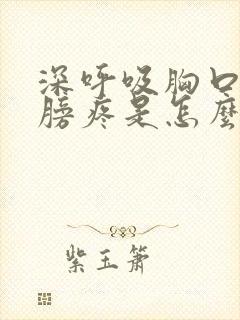 深呼吸胸口
膀疼是怎麼
紫玉簫